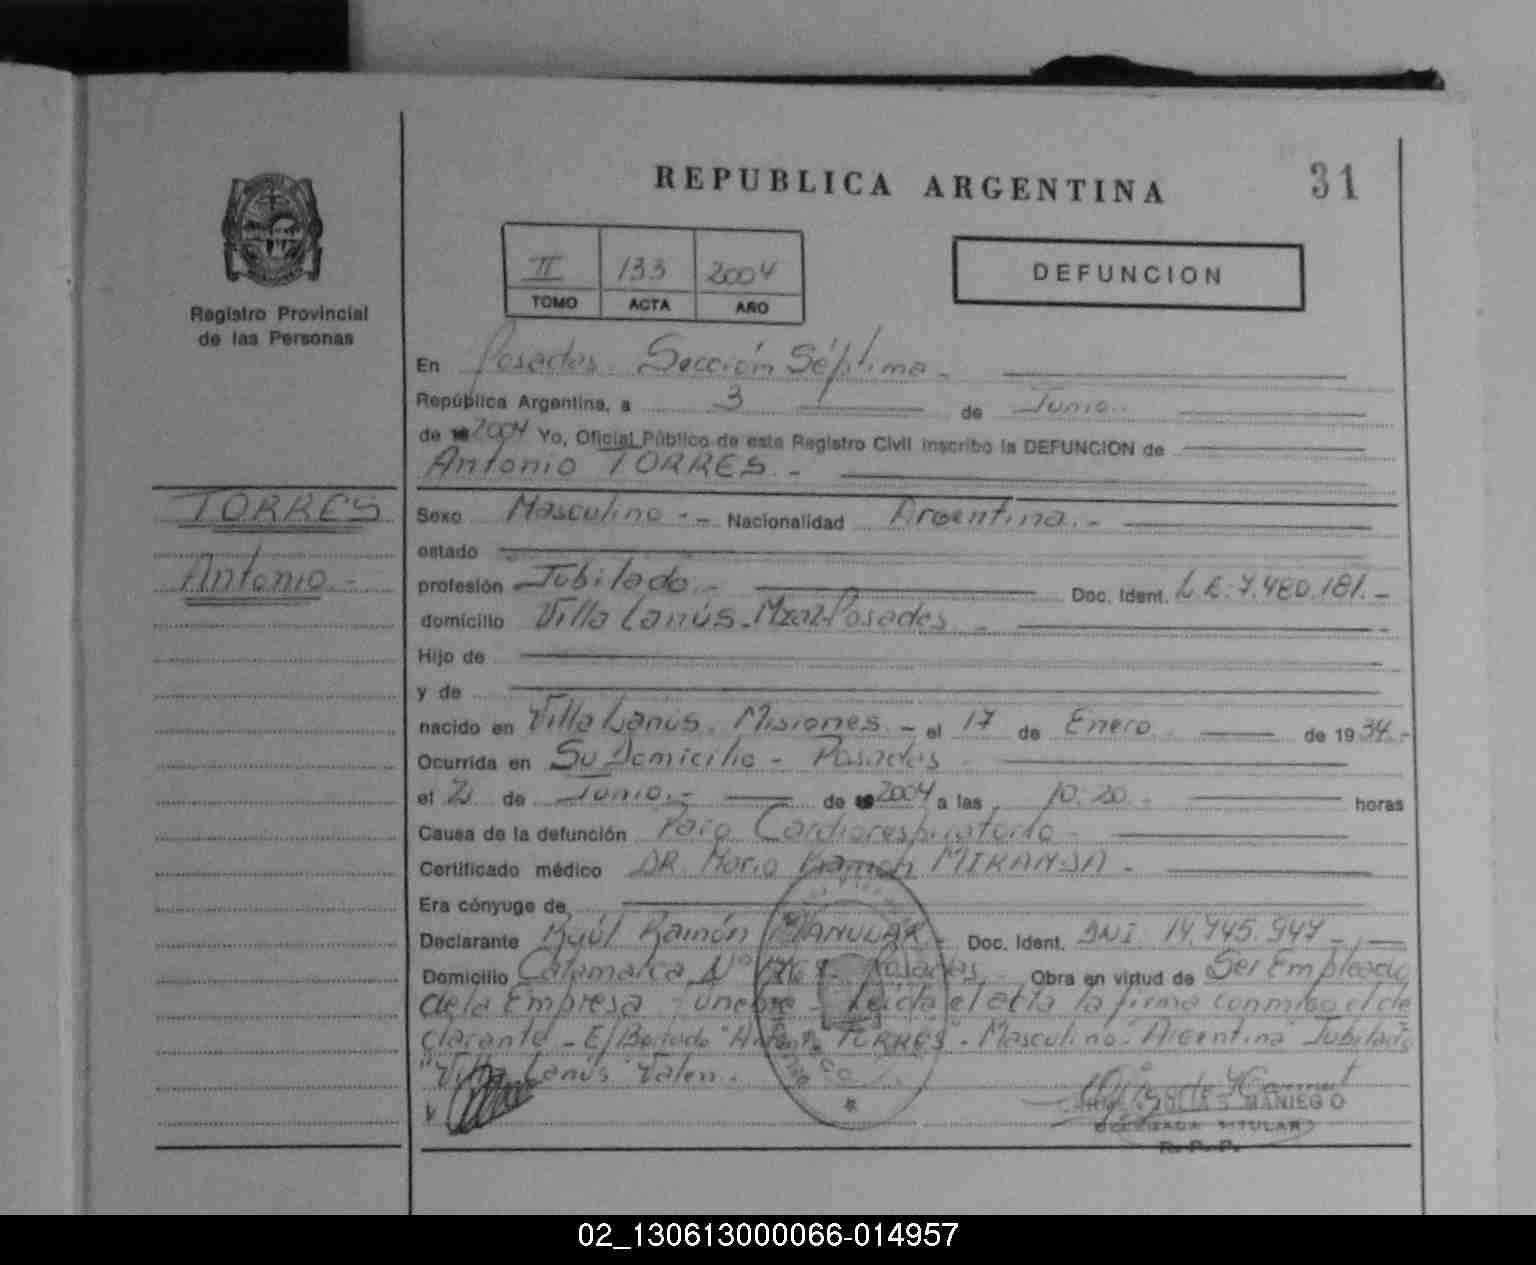 REPUBLICA ARGENTINA
31
II 133 2004
TOMO ACTA AÑO
DEFUNCION
Registro Provincial
de las Personas
TORRES
Antonio.-
En Posadas. Sección Séptima.-
República Argentina, a 3 de Junio.
de 2004 Yo, Oficial Público de este Registro Civil inscribo la DEFUNCION de
Antonio TORRES.-
Sexo Masculino.-- Nacionalidad Argentina.-
estado
profesión Jubilado.- Doc. Ident. L.E. 7.480.181.-
domicilio Villa Lanús. Posadas.-
Hijo de
y de
nacido en Villa Lanús. Misiones.- el 17 de Enero de 1934.-
Ocurrida en Su Domicilio - Posadas
el 2 de Junio.- de 2004 a las 10.20.- horas
Causa de la defunción Paro Cardiorespiratorio-
Certificado médico DR. Mario Ramón MIRANDA-
Era cónyuge de
Declarante Raúl Ramón Doc. Ident. DNI 14.745.947-
Domicilio Catamarca Nº Posadas.- Obra en virtud de Ser Empleado
de la Empresa Funebre - Leida el acta la firma conmigo el de
clarante - E/Borrado "Antonio TORRES". Masculino". Argentina" Jubilado
"Villa Lanús" Valen.-
DELEGADA TITULAR
R.P.P.
02_130613000066-014957